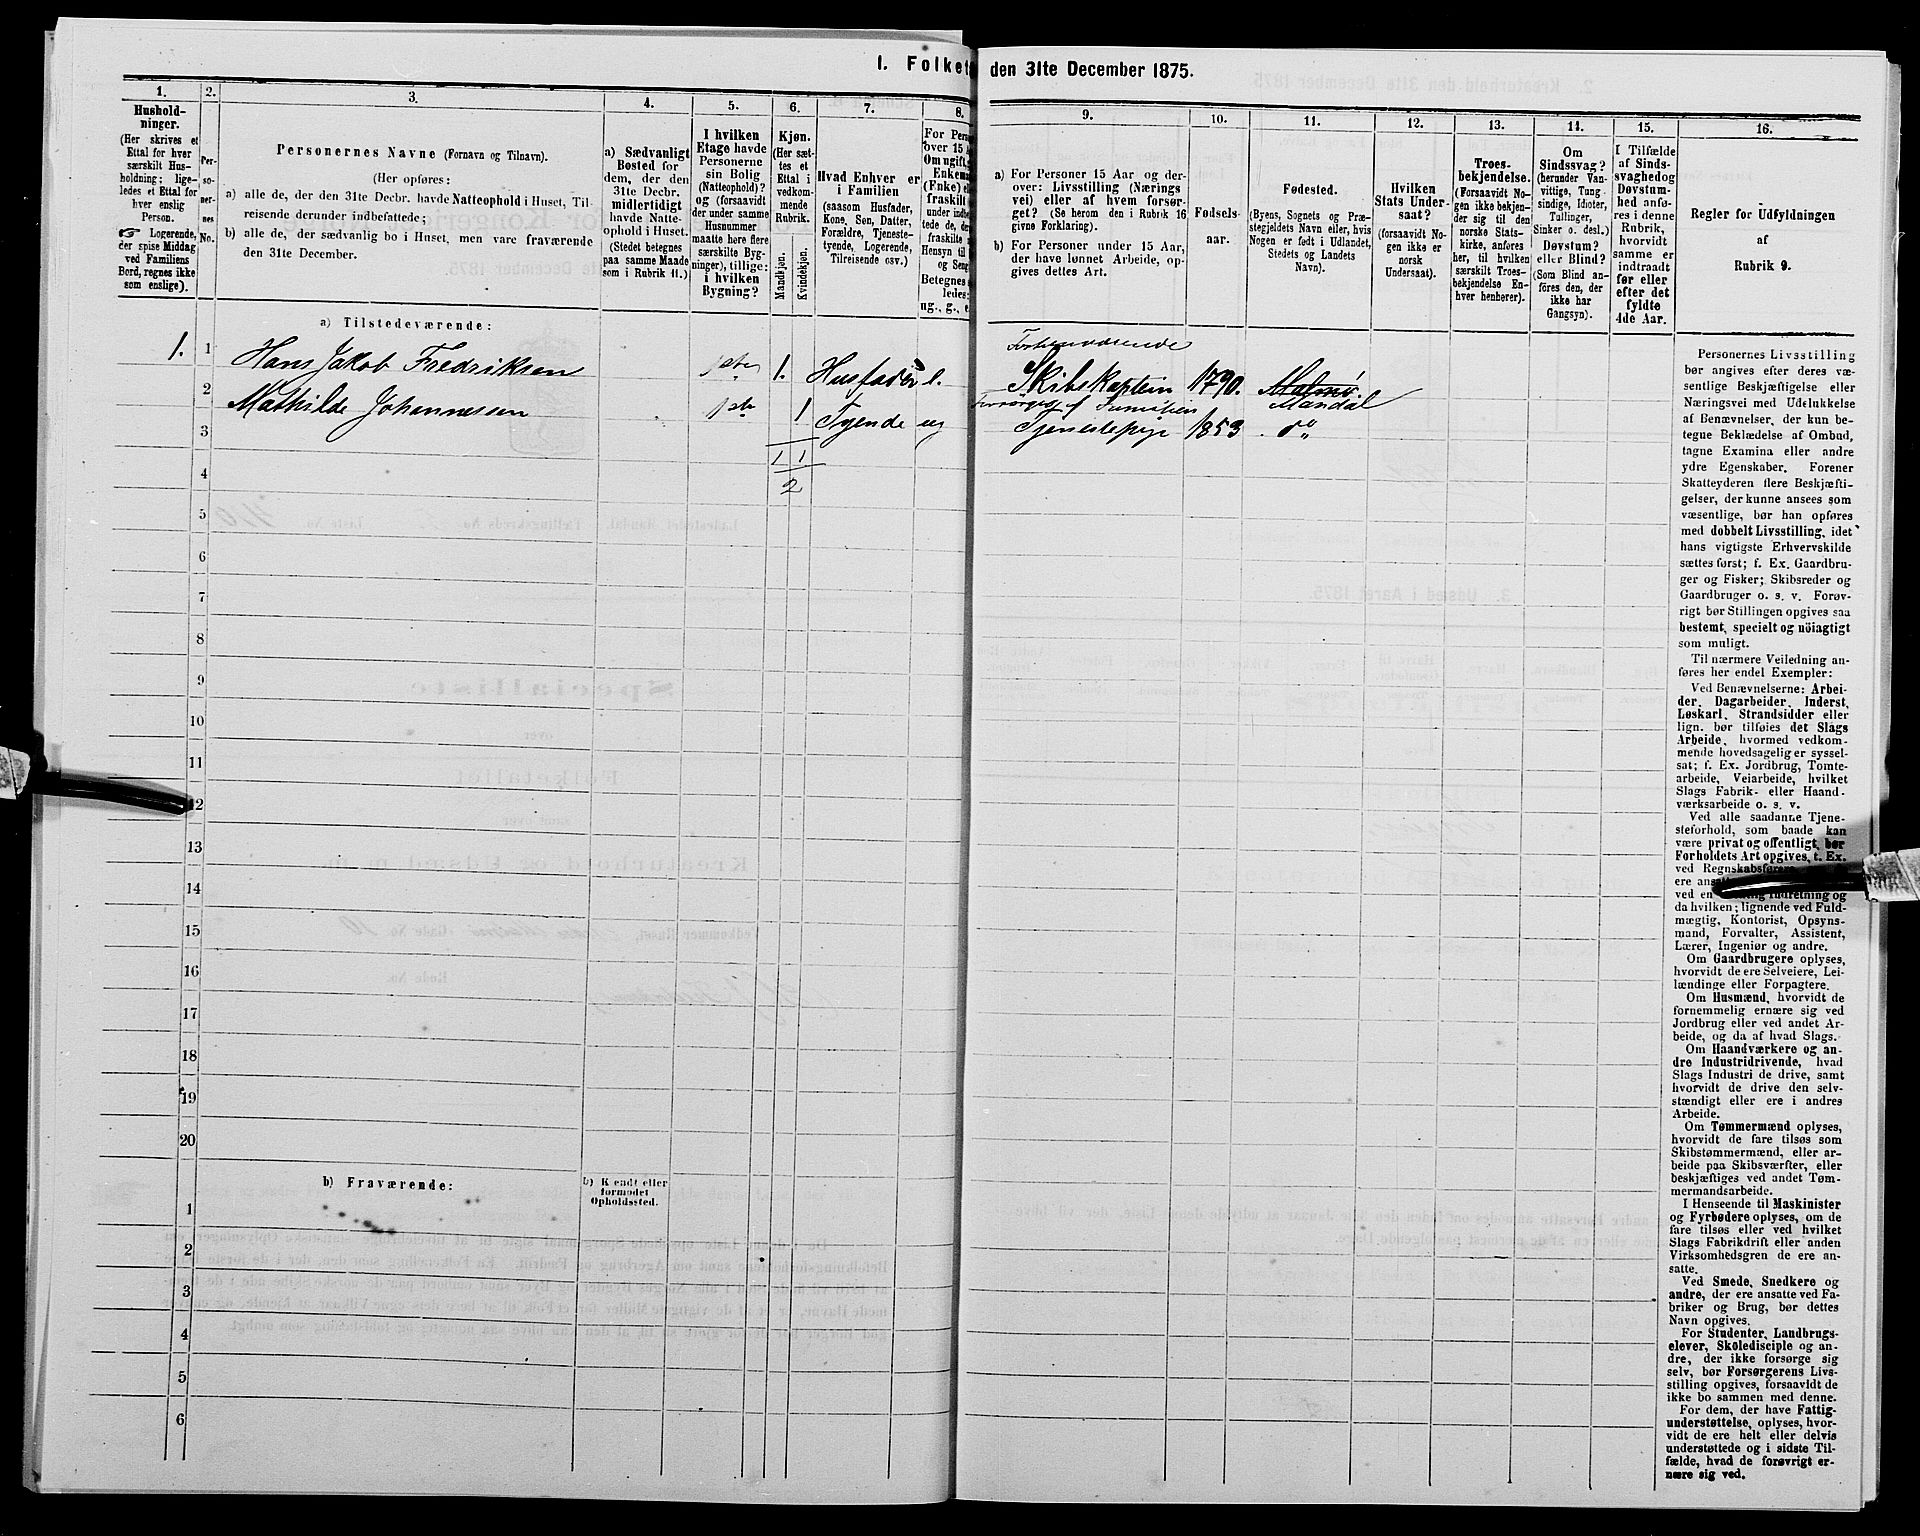 I. Folket
den 31te December 1875.
1.
Hushold-
ninger.
(Her skrives et
Ettal for hver
særskilt Hus-
holdning; lige-
ledes et Ettal for
hver enslig
Person.
☞ Logerende,
der spise Middag
ved Familiens
Bord, regnes ikke
som enslige).
2.
Per-
so-
ner-
nes
No.
3.
Personernes Navne (Fornavn og Tilnavn).
(Her opføres:
a) alle de, der den 31te Decbr. havde Natteophold i Huset, Til-
reisende derunder indbefattede;
b) alle de, der sædvanlig bo i Huset, men vare fraværende
den 31te December.
4.
a) Sædvanligt
Bosted for
dem, der den
31te Decbr.
midlertidigt
havde Natte-
ophold i Huset.
(Stedet betegnes
paa samme Maade
som i Rubrik 11.)
5.
I hvilken
Etage havde
Personerne
sin Bolig
(Natteophold)?
og (forsaavidt
der under samme
Husnummer
maatte høre flere
særskilte Byg-
ninger), tillige:
i hvilken
Bygning?
6.
Kjøn.
(Her sæt-
tes et
Ettal i
vedkom-
mende
Rubrik.
Mandkjøn.
Kvindekjøn.
7.
Hvad Enhver er
i Familien
(saasom Husfader,
Kone, Søn, Datter,
Forældre, Tjeneste-
tyende, Logerende,
Tilreisende osv.)
8.
For Pers
over 15 A
Om ugift,
Enkema
(Enke) el
fraskilt
under indb
tede de, der
fraskilte
Hensyn til
og Seng
Betegnes s
ledes:
ug., g., e
9.
a) For Personer 15 Aar og der-
over: Livsstilling (Nærings
vei) eller af hvem forsør-
get? (Se herom den i Rubrik 16
givne Forklaring).
b) For Personer under 15 Aar,
der have lønnet Arbeide, op-
gives dettes Art.
10.
Fødsels-
aar.
11.
Fødested.
(Byens, Sognets og Præ-
stegjeldets Navn eller, hvis
Nogen er født i Udlandet,
Stedets og Landets
Navn).
12.
Hvilken
Stats Under-
saat?
(forsaavidt No-
gen ikke er
norsk
Undersaat).
13.
Troes-
bekjendelse.
(Forsaavidt No-
gen ikke bekjen-
der sig til den
norske Stats-
kirke, anføres
her, til hvilken
særskilt Troes-
bekjendelse En-
hver henhører).
14.
Om
Sindssvag?
(herunder Van-
vittige, Tung-
sindige, Idioter,
Tullinger,
Sinker o. desl.)
Døvstum?
eller Blind?
(Som Blind an-
føres den, der
ikke har
Gangsyn).
15.
I Tilfælde
af Sinds-
svaghed og
Døvstum-
hed anfø-
res i denne
Rubrik,
hvorvidt
samme er
indtraadt
før eller
efter det
fyldte
4de Aar.
16.
Regler for Udfyldningen
af
Rubrik 9.
a) Tilstedeværende:
1. 1 Hans Jakob Fredriksen 1ste 1. Husfader e. Forhenværende Skibskaptein 1790. Malmø. Mandal
2 Mathilde Johannessen 1ste 1 Tyende ug Tjenestepige 1853 do
3
1 1
4
2
5
6
7
8
9
10
11
12
13
14
15
16
17
18
19
20
b) Fraværende:
b) Kendt eller
formodet
Opholdssted.
1
2
3
4
5
6
Personernes Livsstilling
bør angives efter deres væ-
sentlige Beskjæftigelse eller
Næringsvei med Udelukkelse
af Benævnelser, der kun be-
tegne Beklædelse af Ombud,
tagne Examina eller andre
ydre Egenskaber. Forener
Skatteyderen flere Beskjæfti-
gelser, der kunne ansees som
væsentlige, bør han opføres
med dobbelt Livsstilling, idet
hans vigtigste Erhvervskilde
sættes først; f. Ex. Gaardbru-
ger og Fisker; Skibsreder og
Gaardbruger o. s. v. Forøv-
rigt bør Stillingen opgives saa
bestemt, specielt og nöiagtigt
som muligt.
Til nærmere Veiledning an-
føres her endel Exempler:
Ved Benævnelserne: Arbei-
der, Dagarbeider, Inderst,
Løskarl, Strandsidder eller
lign. bør tilføies det Slags
Arbeide, hvormed vedkom-
mende hovedsagelig er syssel-
sat; f. Ex. Jordbrug, Tomte-
arbeide, Veiarbeide, hvilket
Slags Fabrik- eller Haand-
værksarbeide o. s. v.
Ved alle saadanne Tjene-
steforhold, som baade kan
være privat og offentligt, bør
Forholdets Art opgives, f. Ex.
ved Regnskabsførere
ere ansatte
ved en Indretning og
da hvilken; lignende ved Fuld-
mægtig, Kontorist, Opsyns-
mand, Forvalter, Assistent,
Lærer, Ingeniør og andre.
Om Gaardbrugere oplyses,
hvorvidt de ere Selveiere, Lei-
lændinge eller Forpagtere.
Om Husmænd, hvorvidt de
fornemmelig ernære sig ved
Jordbrug eller ved andet Ar-
beide, og da af hvad Slags.
Om Haandværkere og an-
dre Industridrivende, hvad
Slags Industri de drive, samt
hvorvidt de drive den selv-
stændigt eller ere i andres
Arbeide.
Om Tømmermænd oplyses,
hvorvidt de fare tilsøs som
Skibstømmermænd, eller ar-
beide paa Skibsværfter, eller
beskjæftiges ved andet Tøm-
mermandsarbeide.
I Henseende til Maskinister
og Fyrbødere oplyses, om de
fare tilsøs eller ved hvilket
Slags Fabrikdrift eller anden
Virksomhedsgren de ere an-
satte.
Ved Smede, Snedkere og
andre, der ere ansatte ved Fa-
briker og Brug, bør dettes
Navn opgives.
For Studenter, Landbrugs-
elever, Skoledisciple og an-
dre, der ikke forsørge sig
selv, bør Forsørgerens Livs-
stilling opgives, forsaavidt de
ikke bo sammen med denne.
For dem, der have Fattig-
understøttelse, oplyses, hvor-
vidt de ere helt eller delvis
understøttede og i sidste Til-
fælde, hvad de forøvrigt er-
nære sig ved.